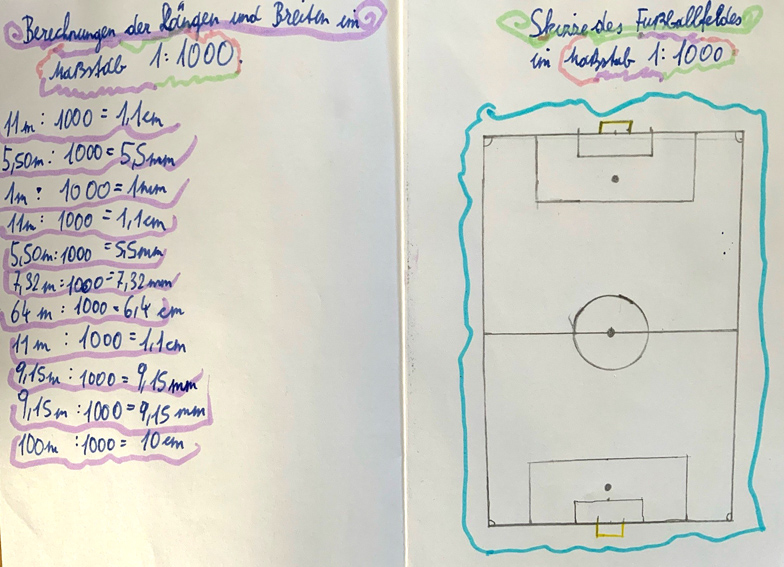 Berechnungen der Längen und Breiten im
Maßstab 1:1000.
11m : 1000 = 1,1cm
5,50m : 1000 = 5,5mm
1m : 1000 = 1mm
11m : 1000 = 1,1cm
5,50m : 1000 = 5,5mm
7,32m : 1000 = 7,32mm
64m : 1000 = 6,4cm
11m : 1000 = 1,1cm
9,15m : 1000 = 9,15mm
9,15m : 1000 = 9,15mm
100m : 1000 = 10cm
Skizze des Fußballfeldes
im Maßstab 1:1000